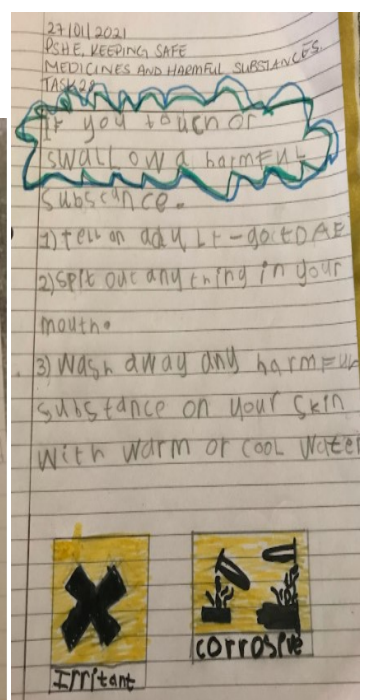 27/01/2021
PSHE. KEEPING SAFE
MEDICINES AND HARMFUL SUBSTANCES.
TASK 2a
If you touch or
swallow a harmFUL
substance.
1) tell an adult - go to DAE
2) spit out any thing in your
mouth.
3) Wash away any harmFUL
substance on your skin
With warm or cool water
Irritant
corrosive